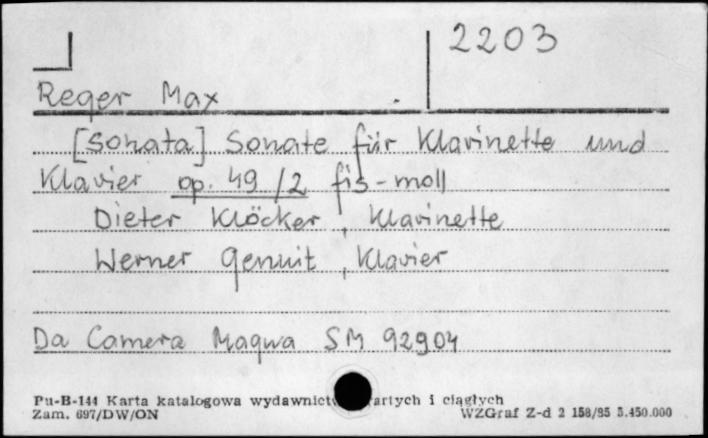 2203
Reger Max
[Sonata] Sonate für Klarinette und
Klavier op. 49/2 fis-moll
Dieter Klöcker, Klarinette
Werner Genuit, Klavier
Da Camera Magna SM 92904
Pu-B-144 Karta katalogowa wydawnictw i ciągłych
Zam. 697/DW/ON WZGraf Z-d 2 158/85 5.450.000